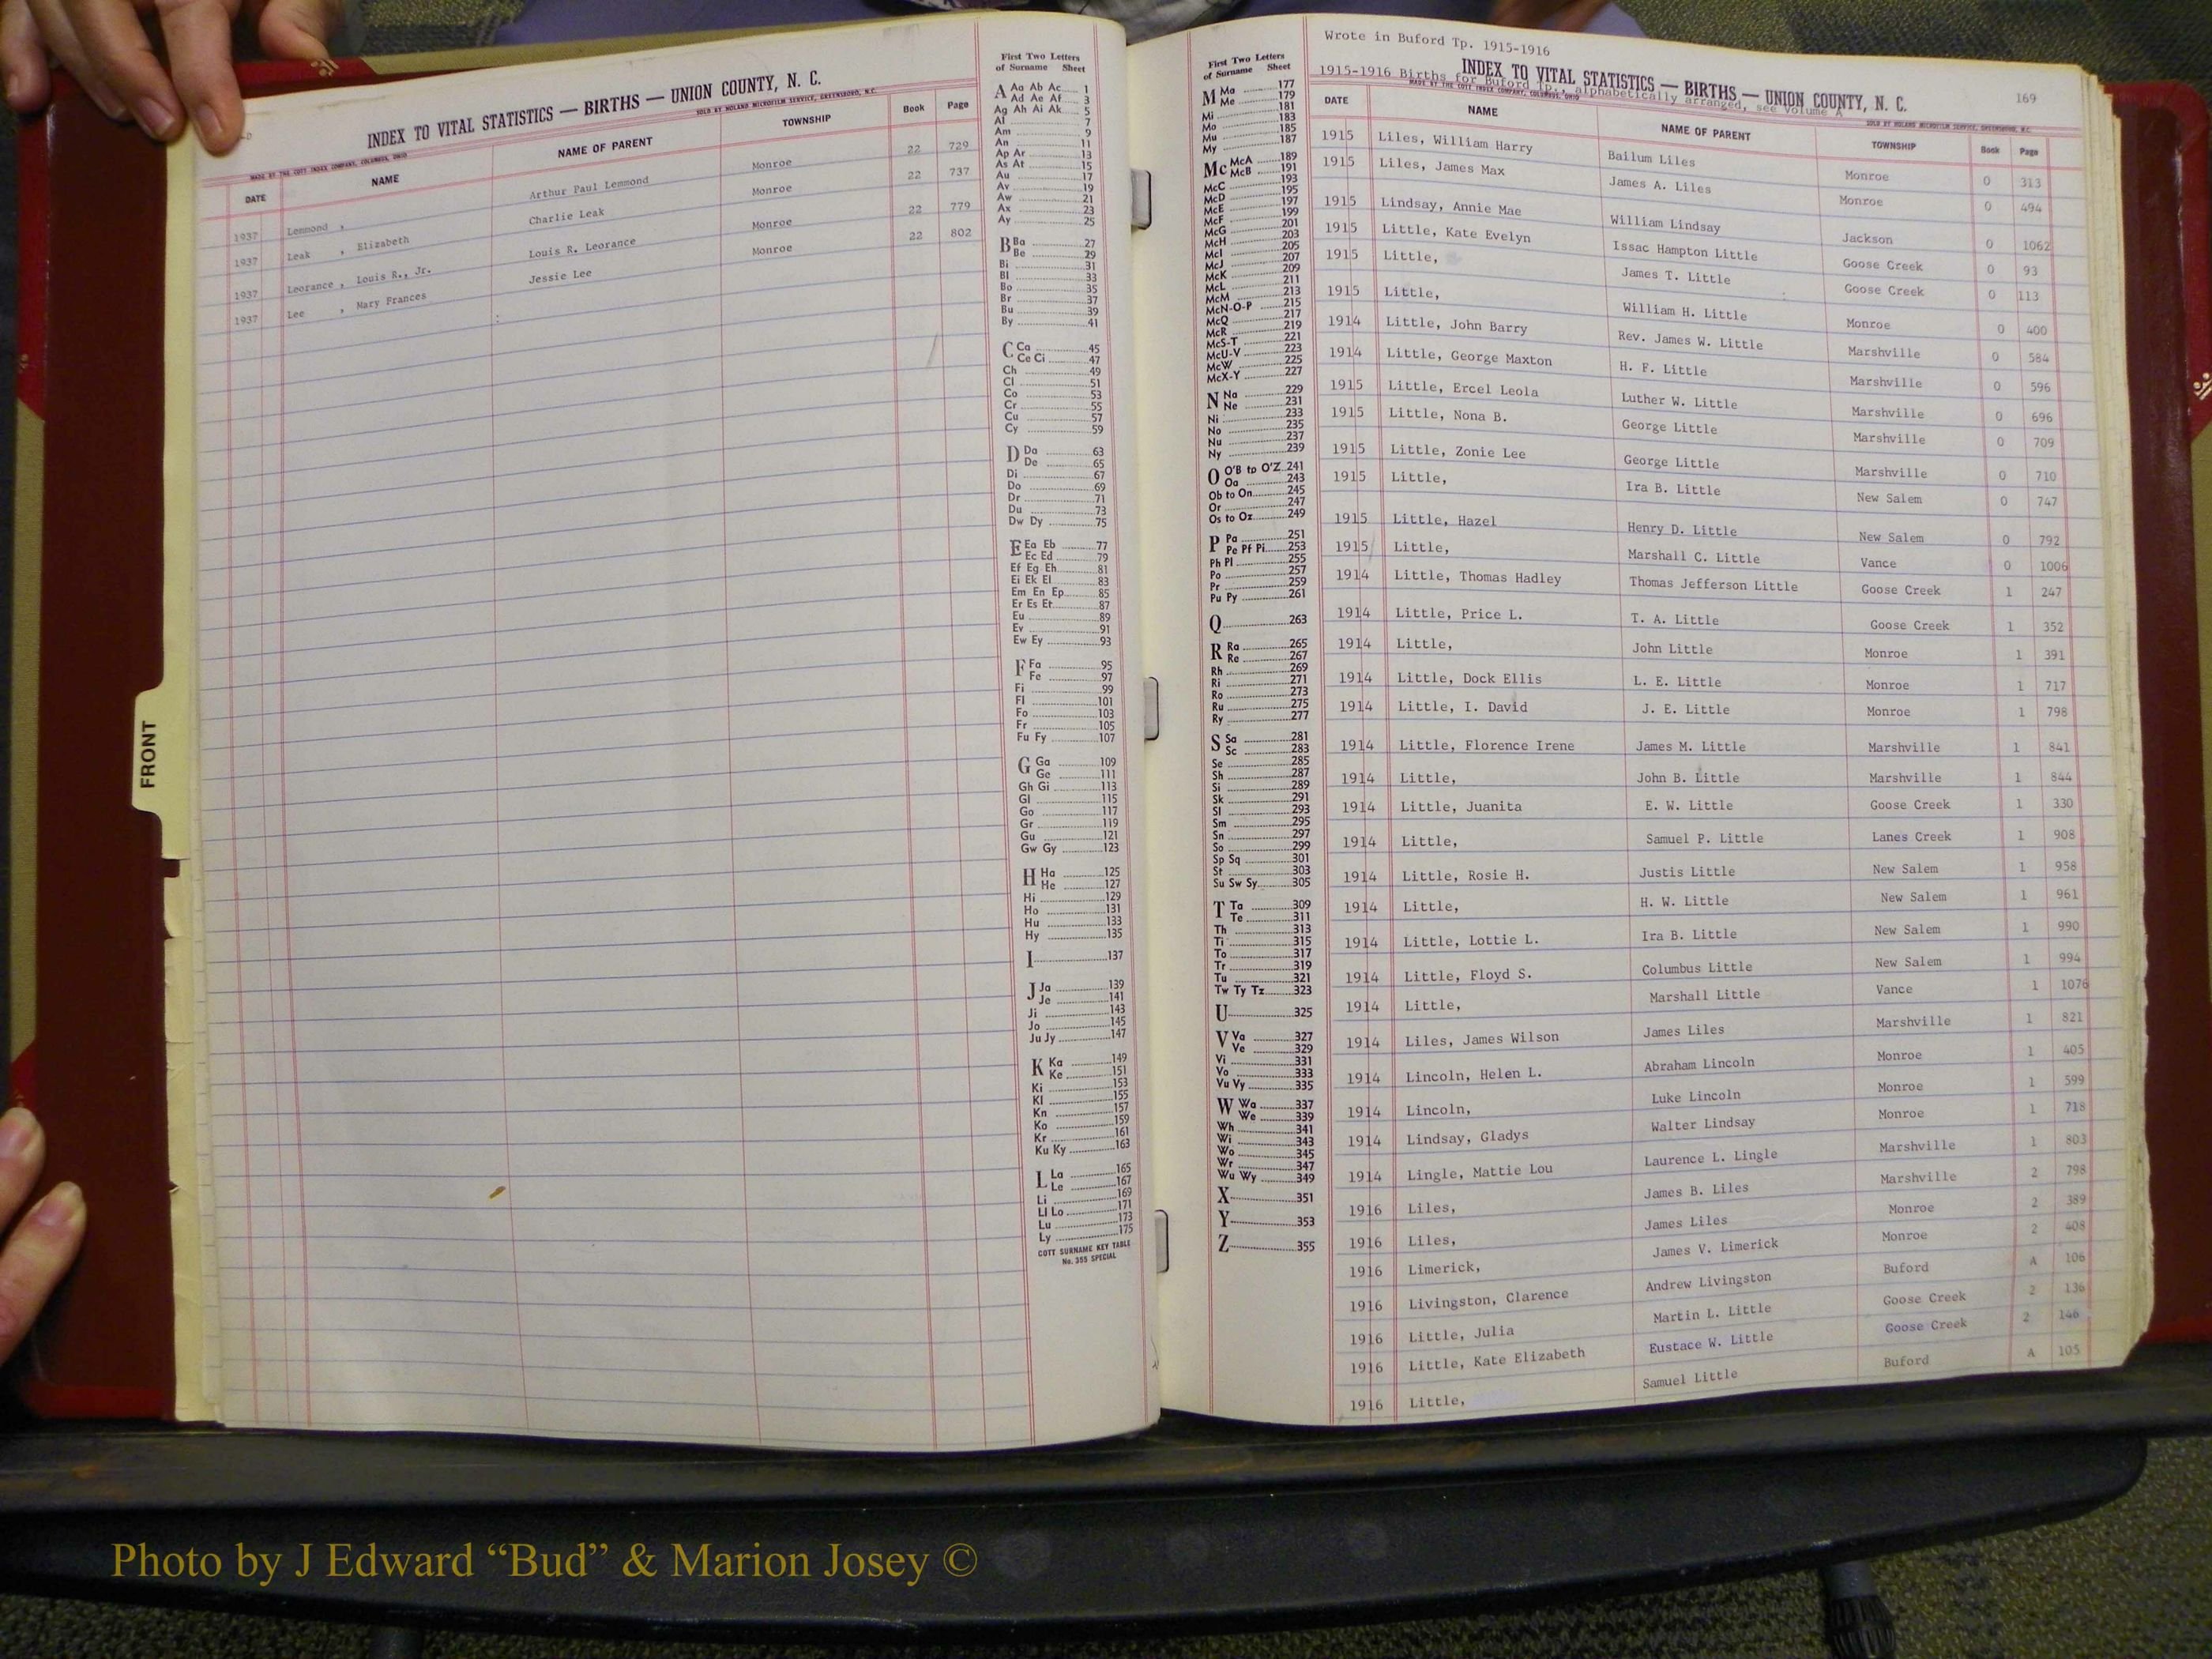 INDEX TO VITAL STATISTICS — BIRTHS — UNION COUNTY, N. C.
MADE BY THE COTT INDEX COMPANY, COLUMBUS, OHIO SOLD BY NOLAND MICROFILM SERVICE, GREENSBORO, N.C.
DATE NAME NAME OF PARENT TOWNSHIP Book Page
1937 Lemmond , Arthur Paul Lemmond Monroe 22 729
1937 Leak , Elizabeth Charlie Leak Monroe 22 737
1937 Leorance , Louis R., Jr. Louis R. Leorance Monroe 22 779
1937 Lee , Mary Frances Jessie Lee Monroe 22 802
FRONT
First Two Letters
of Surname Sheet
A Aa Ab Ac 1
Ad Ae Af 3
Ag Ah Ai Ak 5
Al 7
Am 9
An 11
Ap Ar 13
As At 15
Au 17
Av 19
Aw 21
Ax 23
Ay 25
B Ba 27
Be 29
Bi 31
Bl 33
Bo 35
Br 37
Bu 39
By 41
C Ca 45
Ce Ci 47
Ch 49
Cl 51
Co 53
Cr 55
Cu 57
Cy 59
D Da 63
De 65
Di 67
Do 69
Dr 71
Du 73
Dw Dy 75
E Ea Eb 77
Ec Ed 79
Ef Eg Eh 81
Ei Ek El 83
Em En Ep 85
Er Es Et 87
Eu 89
Ev 91
Ew Ey 93
F Fa 95
Fe 97
Fi 99
Fl 101
Fo 103
Fr 105
Fu Fy 107
G Ga 109
Ge 111
Gh Gi 113
Gl 115
Go 117
Gr 119
Gu 121
Gw Gy 123
H Ha 125
He 127
Hi 129
Ho 131
Hu 133
Hy 135
I 137
J Ja 139
Je 141
Ji 143
Jo 145
Ju Jy 147
K Ka 149
Ke 151
Ki 153
Kl 155
Kn 157
Ko 159
Kr 161
Ku Ky 163
L La 165
Le 167
Li 169
Ll Lo 171
Lu 173
Ly 175
COTT SURNAME KEY TABLE
No. 355 SPECIAL
First Two Letters
of Surname Sheet
M Ma 177
Me 179
Mi 181
Mo 183
Mu 185
My 187
Mc McA 189
McB 191
McC 193
McD 195
McE 197
McF 199
McG 201
McH 203
McI 205
McJ 207
McK 209
McL 211
McM 213
McN-O-P 215
McQ 217
McR 219
McS-T 221
McU-V 223
McW 225
McX-Y 227
N Na 229
Ne 231
Ni 233
No 235
Nu 237
Ny 239
O O'B to O'Z 241
Oa 243
Ob to On 245
Or 247
Os to Oz 249
P Pa 251
Pe Pf Pi 253
Ph Pl 255
Po 257
Pr 259
Pu Py 261
Q 263
R Ra 265
Re 267
Rh 269
Ri 271
Ro 273
Ru 275
Ry 277
S Sa 281
Sc 283
Se 285
Sh 287
Si 289
Sk 291
Sl 293
Sm 295
Sn 297
So 299
Sp Sq 301
St 303
Su Sw Sy 305
T Ta 309
Te 311
Th 313
Ti 315
To 317
Tr 319
Tu 321
Tw Ty Tz 323
U 325
V Va 327
Ve 329
Vi 331
Vo 333
Vu Vy 335
W Wa 337
We 339
Wh 341
Wi 343
Wo 345
Wr 347
Wu Wy 349
X 351
Y 353
Z 355
Wrote in Buford Tp. 1915-1916
INDEX TO VITAL STATISTICS — BIRTHS — UNION COUNTY, N. C. 169
1915-1916 Births for Buford Tp., alphabetically arranged, see Volume A
MADE BY THE COTT INDEX COMPANY, COLUMBUS, OHIO SOLD BY NOLAND MICROFILM SERVICE, GREENSBORO, N.C.
DATE NAME NAME OF PARENT TOWNSHIP Book Page
1915 Liles, William Harry Bailum Liles Monroe 0 313
1915 Liles, James Max James A. Liles Monroe 0 494
1915 Lindsay, Annie Mae William Lindsay Jackson 0 1062
1915 Little, Kate Evelyn Issac Hampton Little Goose Creek 0 93
1915 Little, James T. Little Goose Creek 0 113
1915 Little, William H. Little Monroe 0 400
1914 Little, John Barry Rev. James W. Little Marshville 0 584
1914 Little, George Maxton H. F. Little Marshville 0 596
1915 Little, Ercel Leola Luther W. Little Marshville 0 696
1915 Little, Nona B. George Little Marshville 0 709
1915 Little, Zonie Lee George Little Marshville 0 710
1915 Little, Ira B. Little New Salem 0 747
1915 Little, Hazel Henry D. Little New Salem 0 792
1915 Little, Marshall C. Little Vance 0 1006
1914 Little, Thomas Hadley Thomas Jefferson Little Goose Creek 1 247
1914 Little, Price L. T. A. Little Goose Creek 1 352
1914 Little, John Little Monroe 1 391
1914 Little, Dock Ellis L. E. Little Monroe 1 717
1914 Little, I. David J. E. Little Monroe 1 798
1914 Little, Florence Irene James M. Little Marshville 1 841
1914 Little, John B. Little Marshville 1 844
1914 Little, Juanita E. W. Little Goose Creek 1 330
1914 Little, Samuel P. Little Lanes Creek 1 908
1914 Little, Rosie H. Justis Little New Salem 1 958
1914 Little, H. W. Little New Salem 1 961
1914 Little, Lottie L. Ira B. Little New Salem 1 990
1914 Little, Floyd S. Columbus Little New Salem 1 994
1914 Little, Marshall Little Vance 1 1076
1914 Liles, James Wilson James Liles Marshville 1 821
1914 Lincoln, Helen L. Abraham Lincoln Monroe 1 405
1914 Lincoln, Luke Lincoln Monroe 1 599
1914 Lindsay, Gladys Walter Lindsay Monroe 1 718
1914 Lingle, Mattie Lou Laurence L. Lingle Marshville 1 803
1916 Liles, James B. Liles Marshville 2 798
1916 Liles, James Liles Monroe 2 389
1916 Limerick, James V. Limerick Monroe 2 408
1916 Livingston, Clarence Andrew Livingston Buford A 106
1916 Little, Julia Martin L. Little Goose Creek 2 136
1916 Little, Kate Elizabeth Eustace W. Little Goose Creek 2 146
1916 Little, Samuel Little Buford A 105
Photo by J Edward “Bud” & Marion Josey ©